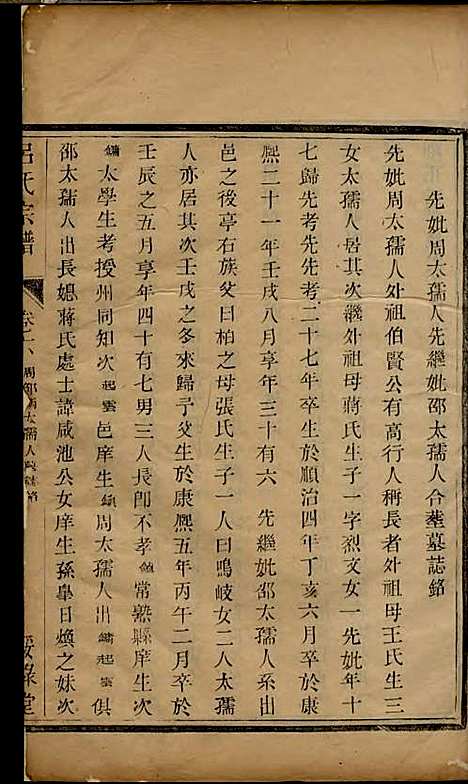 先妣周太孺人先繼妣邵太孺人合塟墓誌銘
先妣周太孺人外祖伯賢公有高行人稱長者外祖母王氏生三
女太孺人居其次繼外祖母蔣氏生子一字烈文女一先妣年十
七歸先考先先考二十七年卒生於順治四年丁亥六月卒於康
熙二十一年壬戌八月享年三十有六 先繼妣邵太孺人系出
邑之後亭右族父曰柏之母張氏生子一人曰鳴岐女二人太孺
人亦居其次壬戌之冬來歸予父生於康熙五年丙午二月卒於
壬辰之五月享年四十有七男三人長卽不孝 常熟縣庠生次
太學生考授州同知次起雲邑庠生 周太孺人出 起雲俱
邵太孺人出長媳蔣氏處士諱咸池公女庠生孫舉日煥之妹次
呂氏宗譜
卷十八